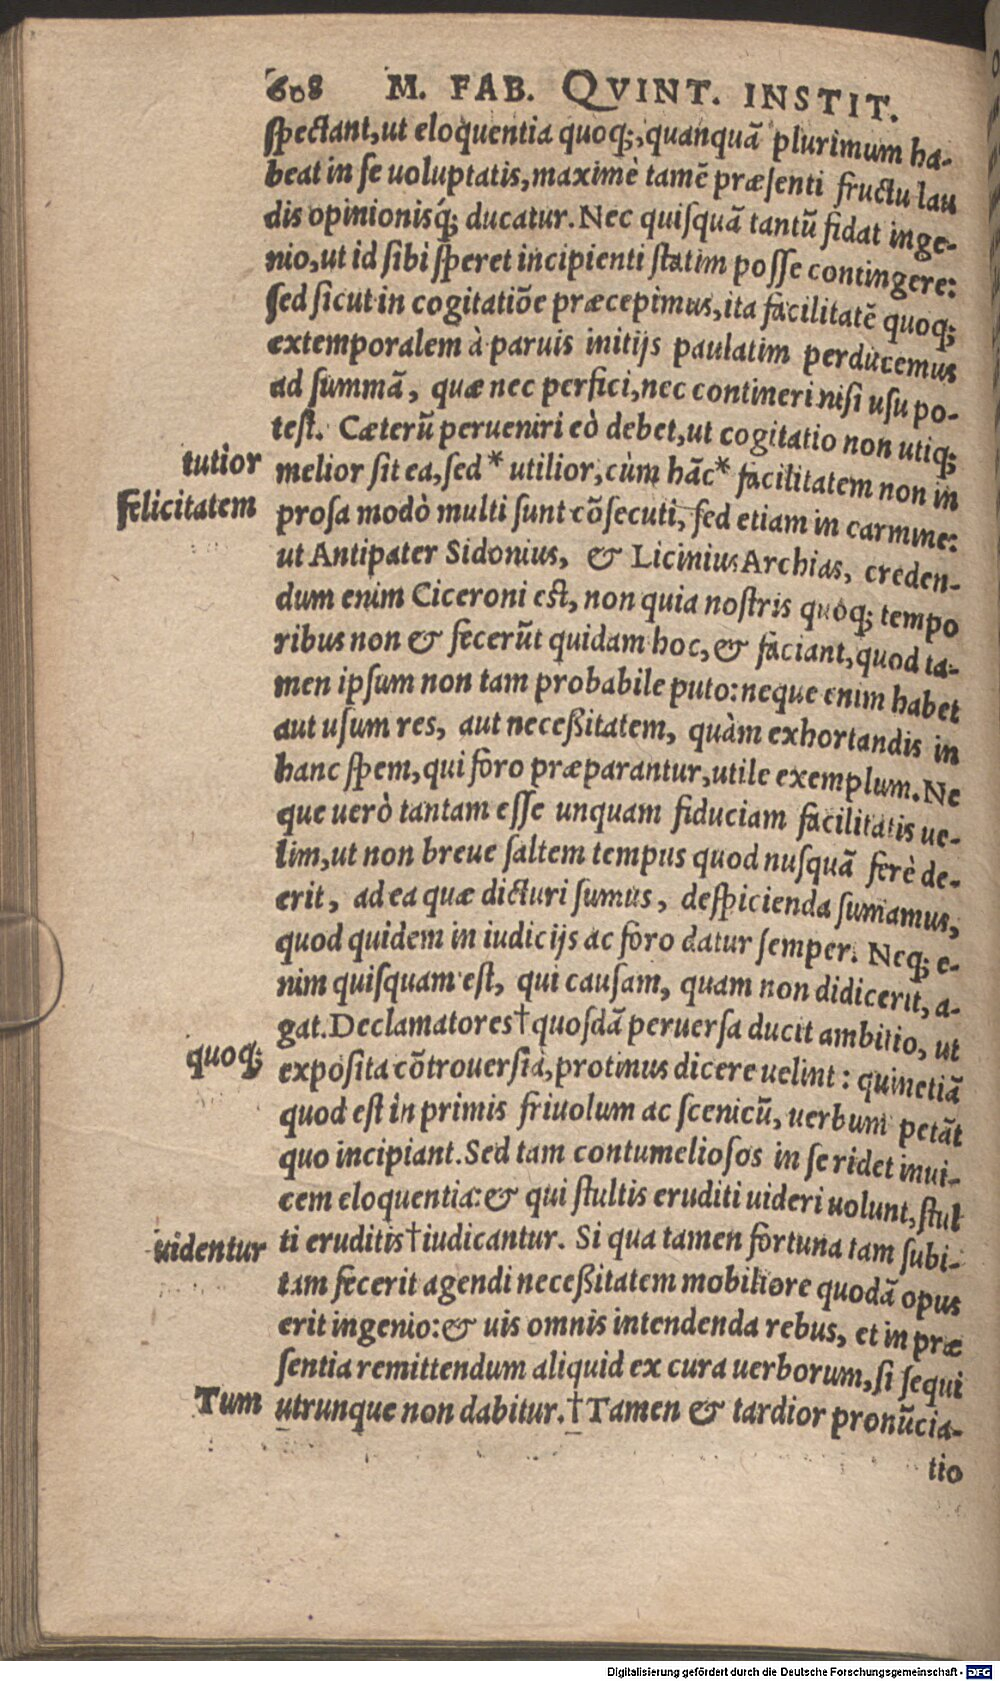 608 M. FAB. QVINT. INSTIT.
spectant, ut eloquentia quoq;, quanquã plurimum ha-
beat in se uoluptatis, maximè tamẽ præsenti fructu lau
dis opinionisq́; ducatur. Nec quisquã tantũ fidat inge-
nio, ut id sibi speret incipienti statim posse contingere:
sed sicut in cogitatiõe præcepimus, ita facilitatẽ quoq;
extemporalem à paruis initijs paulatim perducemus
ad summã, quæ nec perfici, nec contineri nisi usu po-
test. Cæterũ perueniri eò debet, ut cogitatio non utiq;
tutior
melior sit ea, sed * utilior, cùm hãc * facilitatem non in
felicitatem
prosa modò multi sunt cõsecuti, sed etiam in carmine:
ut Antipater Sidonius, & Licinius Archias, creden-
dum enim Ciceroni est, non quia nostris quoq; tempo
ribus non & fecerũt quidam hoc, & faciant, quod ta-
men ipsum non tam probabile puto: neque enim habet
aut usum res, aut neceßitatem, quàm exhortandis in
hanc spem, qui foro præparantur, utile exemplum. Ne
que uerò tantam esse unquam fiduciam facilitatis ue-
lim, ut non breue saltem tempus quod nusquã ferè de-
erit, ad ea quæ dicturi sumus, despicienda sumamus,
quod quidem in iudicijs ac foro datur semper. Neq; e-
nim quisquam est, qui causam, quam non didicerit, a-
gat. Declamatores † quosdã peruersa ducit ambitio, ut
quoq;
exposita cõtrouersia, protinus dicere uelint: quinetiã
quod est in primis friuolum ac scenicũ, uerbum petãt
quo incipiant. Sed tam contumeliosos in se ridet inui-
cem eloquentia: & qui stultis eruditi uideri uolunt, stul
uidentur
ti eruditis † iudicantur. Si qua tamen fortuna tam subi-
tam fecerit agendi neceßitatem mobiliore quodã opus
erit ingenio: & uis omnis intendenda rebus, et in præ
sentia remittendum aliquid ex cura uerborum, si sequi
Tum
utrunque non dabitur. † Tamen & tardior pronũcia-
tio
Digitalisierung gefördert durch die Deutsche Forschungsgemeinschaft - DFG